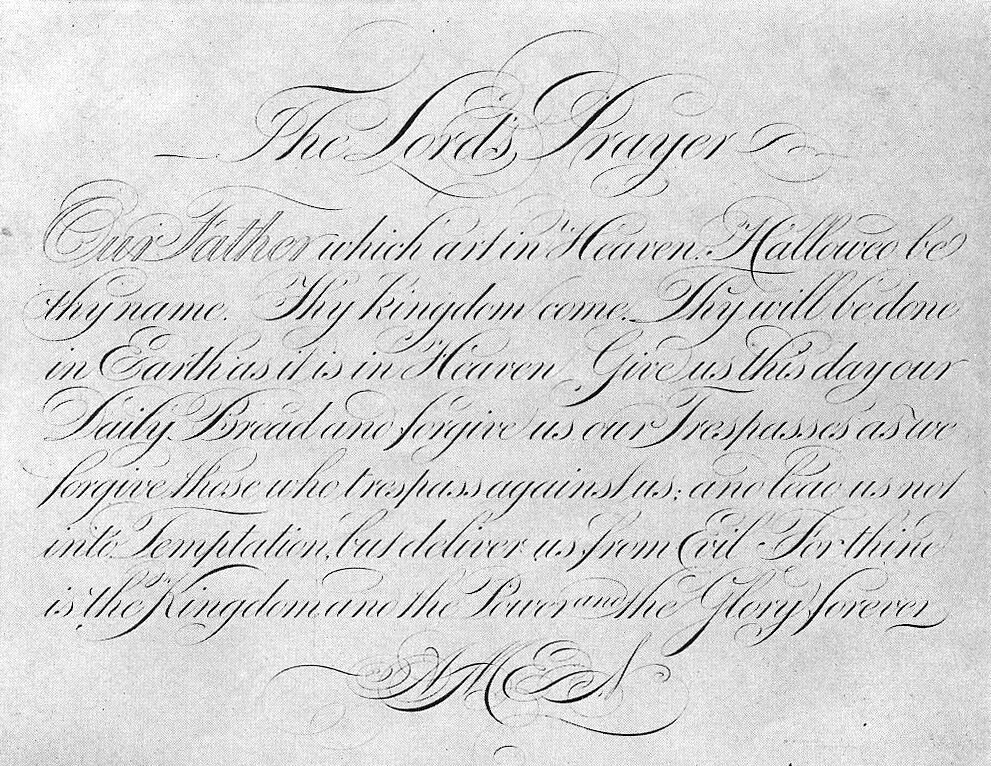 The Lord's Prayer
Our Father which art in Heaven. Hallowed be
thy name. Thy kingdom come. Thy will be done
in Earth as it is in Heaven Give us this day our
Daily Bread and forgive us our Trespasses as we
forgive those who trespass against us; and lead us not
into Temptation, but deliver us from Evil For thine
is the Kingdom and the Power and the Glory forever
AMEN